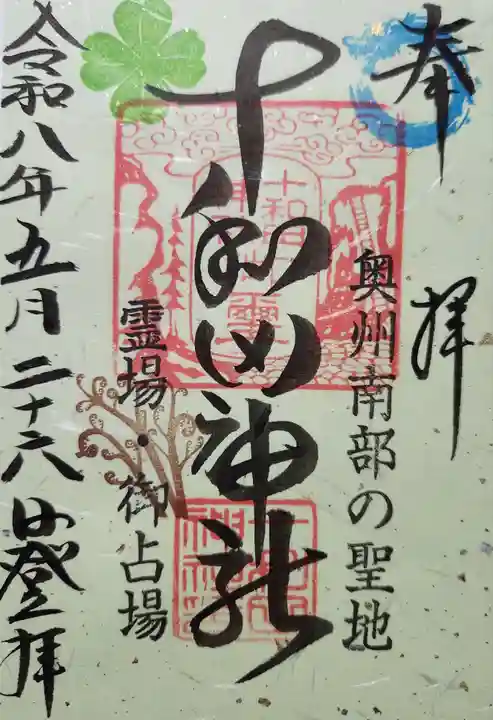 奉拝
奥州南部の聖地
十和田神
霊場・御占場
令和八年五月二十六日登拝